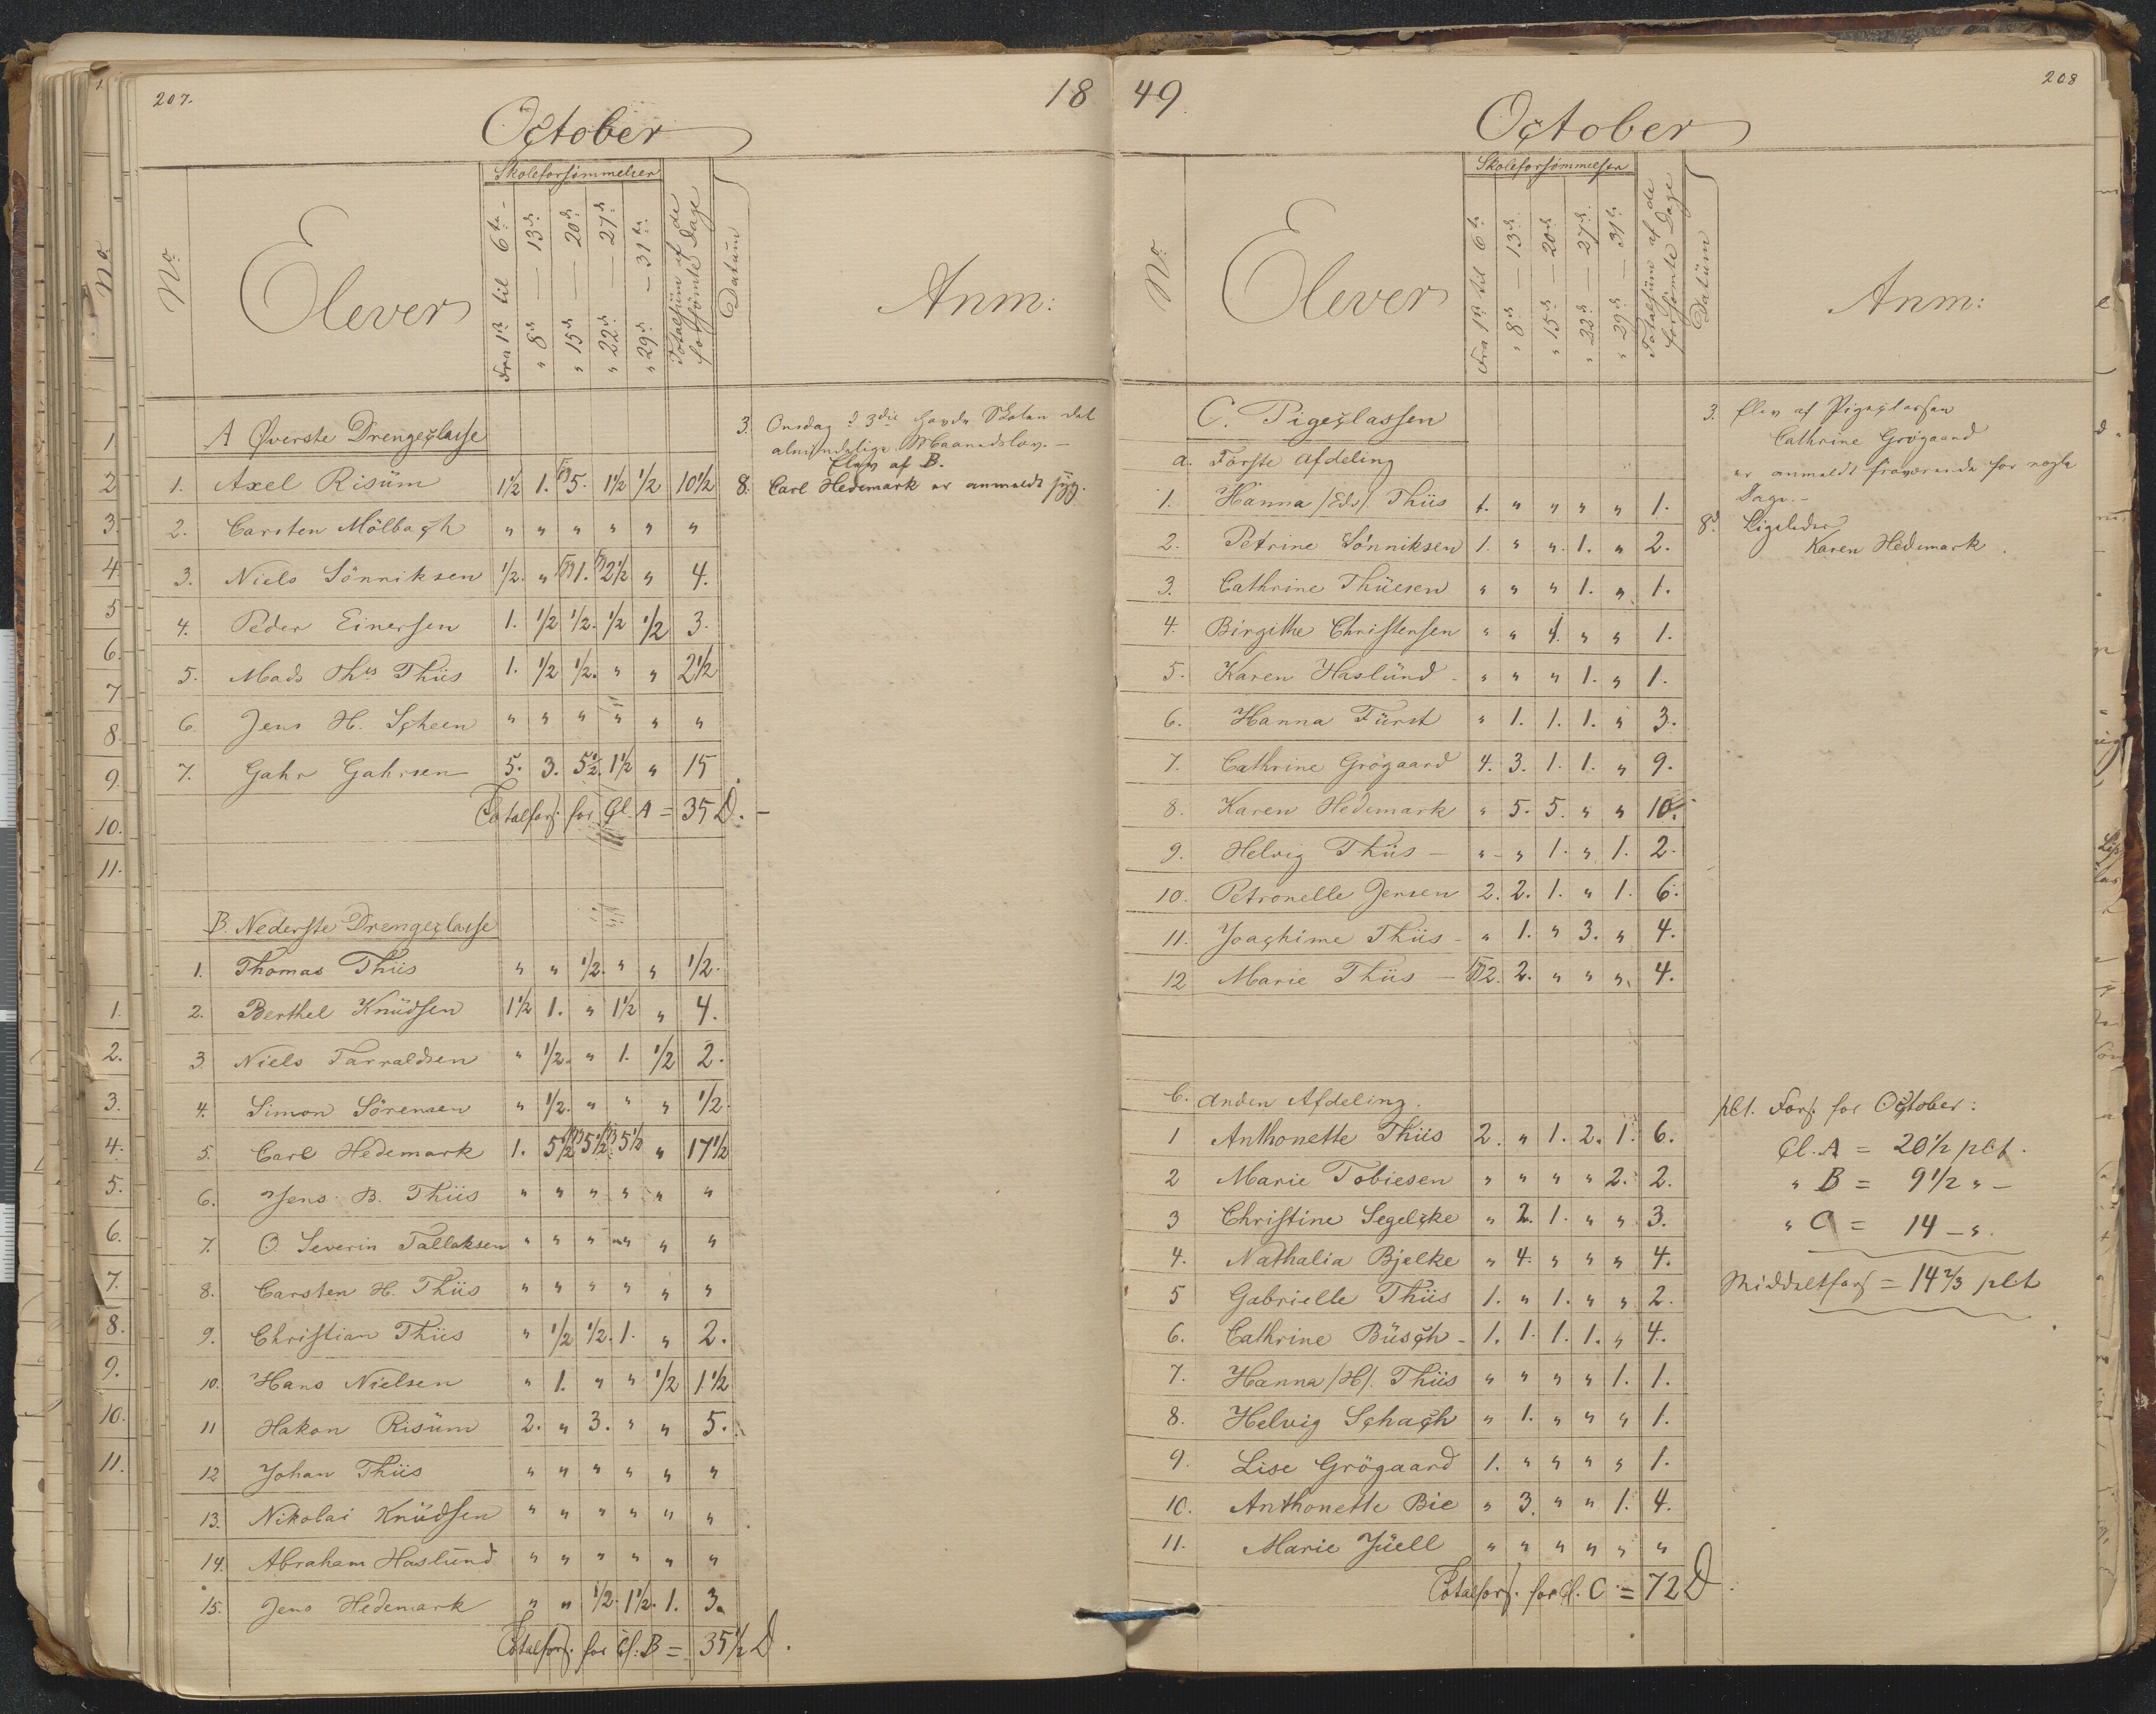 207.
18
October
No.
Elever
Skoleforsömmelser
Fra 1ste til 6te
" 8de — 13de
" 15de — 20de
" 22de — 27de
" 29de — 31te
Totalsüm af de forsömte Dage
Datüm
Anm:
A Øverste Drengeclasse
1. Axel Risüm 1½ 1. 5. 1½ ½ 10½
2. Carsten Mölbach " " " " " "
3. Niels Sönniksen ½. " 1. 2½ " 4.
4. Peder Einersen 1. ½ ½. ½ ½ 3.
5. Mads Ths Thiis 1. ½ ½. " " 2½
6. Jens H. Scheen " " " " " "
7. Gahr Gahrsen 5. 3. 5½. 1½ " 15
Totalfors. for Cl. A = 35 D. –
B. Nederste Drengeclasse
1. Thomas Thiis " " ½. " " ½.
2. Berthel Knüdsen 1½ 1. " 1½ " 4.
3. Niels Tarraldsen " ½. " 1. ½ 2.
4. Simon Sörensen " ½. " " " ½.
5. Carl Hedemark 1. 5½ 5½ 5½ " 17½
6. Jens B. Thiis " " " " " "
7. O. Severin Tallaksen " " " " " "
8. Carsten H. Thiis " " " " " "
9. Christian Thiis " ½ ½. 1. " 2.
10. Hans Nielsen " 1. " " ½ 1½
11 Hakon Risüm 2. " 3. " " 5.
12 Johan Thiis " " " " " "
13. Nikolai Knüdsen " " " " " "
14. Abraham Haslünd " " " " " "
15. Jens Hedemark " " ½. 1½. 1. 3.
Totalfors. for Cl. B = 35½ D.
3. Onsdag d 3die havde Skolen det
almindelige Maanedslov. –
Elev af B.
8. Carl Hedemark er anmeldt syg.
49.
208
October
No.
Elever
Skoleforsömmelser
Fra 1ste til 6te
" 8de — 13de
" 15de — 20de
" 22de — 27de
" 29de — 31te
Totalsüm af de forsömte Dage
Datüm
Anm:
C. Pigeclassen
a. Förste Afdeling
1. Hanna /Eds/. Thiis 1. " " " " 1.
2. Petrine Sönniksen 1. " " 1. " 2.
3. Cathrine Thüesen " " " 1. " 1.
4. Birgithe Christensen " " 1. " " 1.
5. Karen Haslünd - " " " 1. " 1.
6. Hanna Fürst " 1. 1. 1. " 3.
7. Cathrine Grögaard 4. 3. 1. 1. " 9.
8. Karen Hedemark " 5. 5. " " 10.
9. Helvig Thiis – " " 1. " 1. 2.
10. Petronelle Jensen 2. 2. 1. " 1. 6.
11. Joachime Thiis - " 1. " 3. " 4.
12 Marie Thiis – 2. 2. " " " 4.
b. Anden Afdeling.
1 Anthonette Thiis 2. " 1. 2. 1. 6.
2 Marie Tobiesen " " " " 2. 2.
3 Christine Segelcke " 2. 1. " " 3.
4. Nathalia Bjelke " 4. " " " 4.
5 Gabrielle Thiis 1. " 1. " " 2.
6. Cathrine Büsch - 1. 1. 1. 1. " 4.
7. Hanna /H/. Thiis " " " " 1. 1.
8. Helvig Schach " 1. " " " 1.
9. Lise Grögaard 1. " " " " 1.
10. Anthonette Bie " 3. " " 1. 4.
11. Marie Jüell " " " " " "
Totalfors. for Cl. C. = 72 D.
3. Elev af Pigeclassen
Cathrine Grögaard
er anmeldt fraværende for nogle
Dage. –
8d. Ligeledes
Karen Hedemark.
pCt. Fors. for October:
Cl. A = 20½ pCt.
" B = 9½ " –
" C = 14 – ".
Middeltfors = 14⅔ pCt